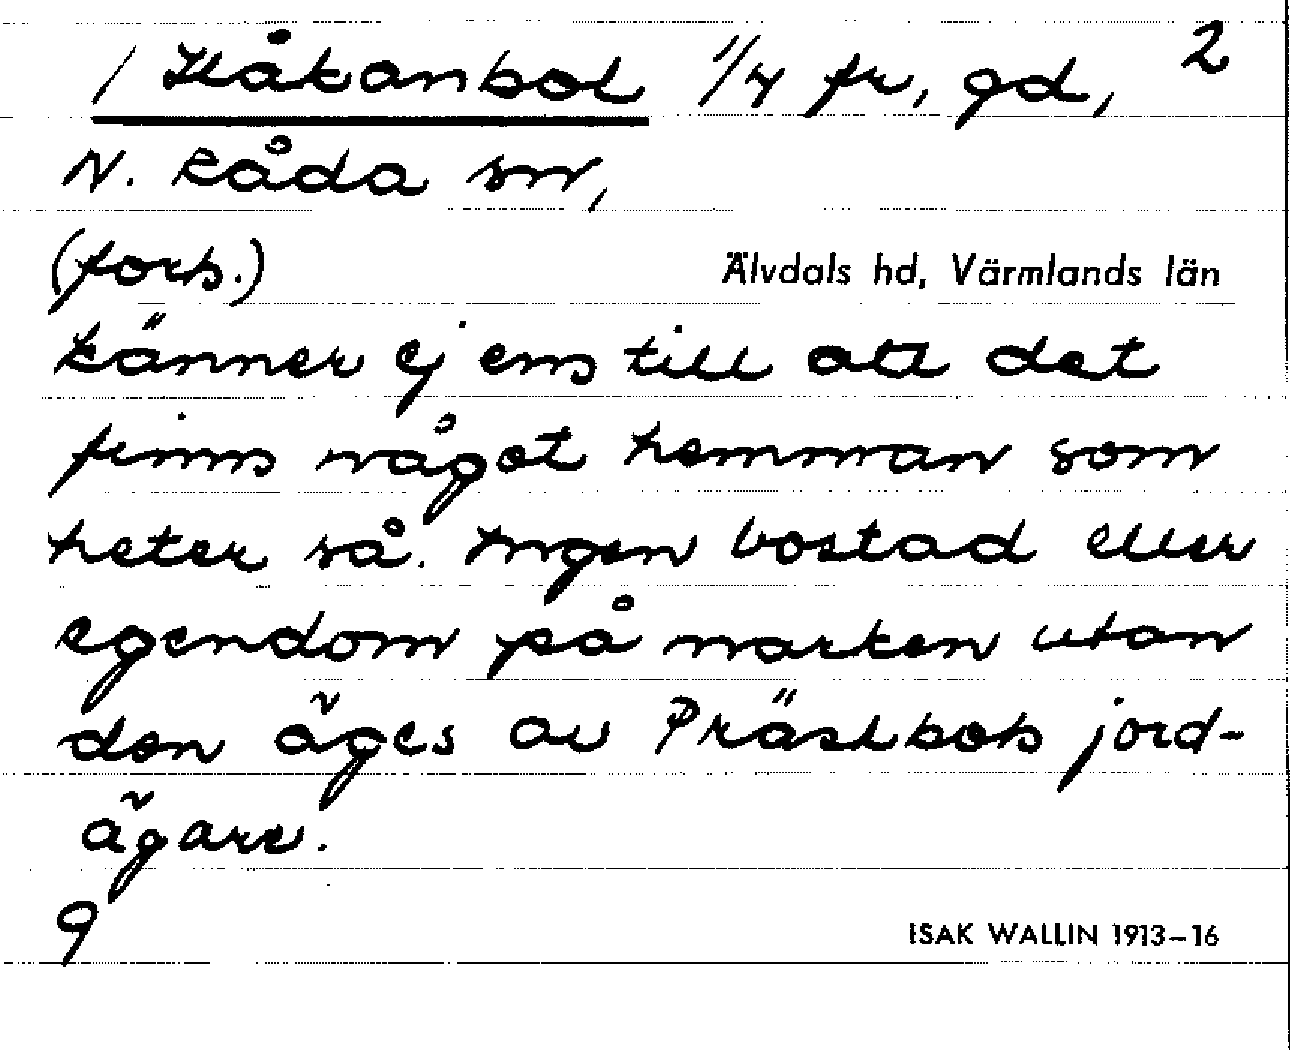 / Håkanbol 1/4 fr, gd, 2
N. Råda sn,
(forts.) Älvdals hd, Värmlands län
känner ej ens till att det
finns något hemman som
heter så. Ingen bostad eller
egendom på marken utan
den äges av Prästbols jord-
ägare.
9 ISAK WALLIN 1913–16